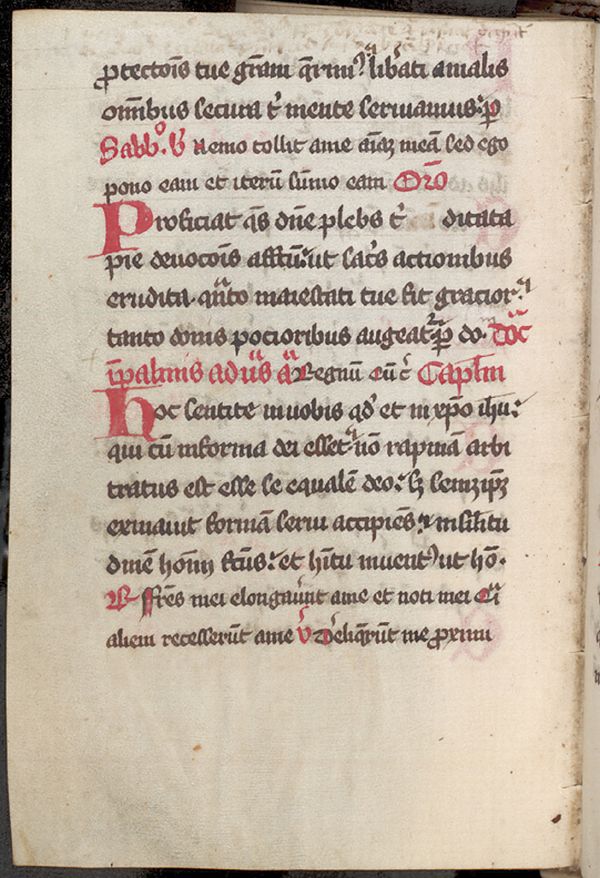 ꝓtectoīs tue grām q̄rim9 libati a malis
om̄ibus secura t̄ mente seruiamus: p̄
Sabb̊. v̄ Nemo tollit a me aīaꝫ meā sed ego
pono eam et iterū sumo eam Or̄o
Proficiat q̄s dn̄e plebs t̄ dicata
pie deuocōis affcū: ut sac̄s actionibus
erudita. qn̄to maiestati tue fit gracior:
tanto donis pocioribus augeat᷑: p̄ do. Dōc
ī palmis ad uēs ā Regnū eū c̄ Caplm̄
Hoc sentite in uobis qd̓ et in xp̄o ihū:
qui cū in forma dei esset: nō rapinā arbi
tratus est esse se equalē deo: sꝫ semꝫip̄ꝫ
exinaniuit formā serui accipiēs: in sil̄itu
dinē hoīm fc̄us: et h̄itu inuent9 ut hō.
R̄ Fr̄es mei elongauer̄t a me et noti mei q̄i
alieni recesserūt a me V̄ Deliq̄rūt me ꝓximi